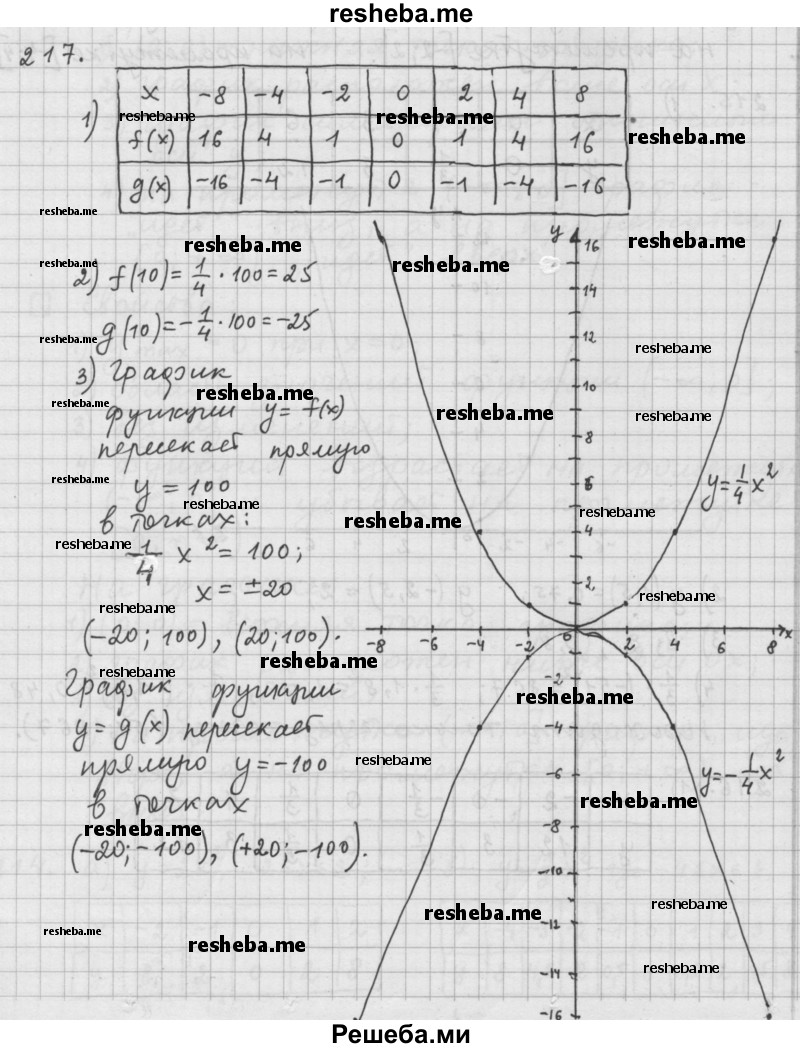 resheba.me
217.
1)
x -8 -4 -2 0 2 4 8
resheba.me resheba.me
f(x) 16 4 1 0 1 4 16
resheba.me
g(x) -16 -4 -1 0 -1 -4 -16
resheba.me
resheba.me resheba.me
resheba.me resheba.me
2) f(10) = 1/4 · 100 = 25
g(10) = -1/4 · 100 = -25
resheba.me resheba.me
3) График
resheba.me resheba.me resheba.me resheba.me
функции y = f(x)
пересекает прямую
resheba.me
y = 100
resheba.me resheba.me resheba.me
в точках:
resheba.me
1/4 x² = 100;
x = ±20
resheba.me resheba.me
(-20; 100), (20; 100).
resheba.me
resheba.me
График функции
resheba.me
y = g(x) пересекает
прямую y = -100
resheba.me
в точках
resheba.me resheba.me
(-20; -100), (+20; -100).
resheba.me resheba.me
resheba.me resheba.me
resheba.me
y
16
14
12
10
8
6
4
2
y = 1/4 x²
-8 -6 -4 -2 0 2 4 6 8 x
-2
-4
-6
-8
-10
-12
-14
-16
y = -1/4 x²
Решеба.ми